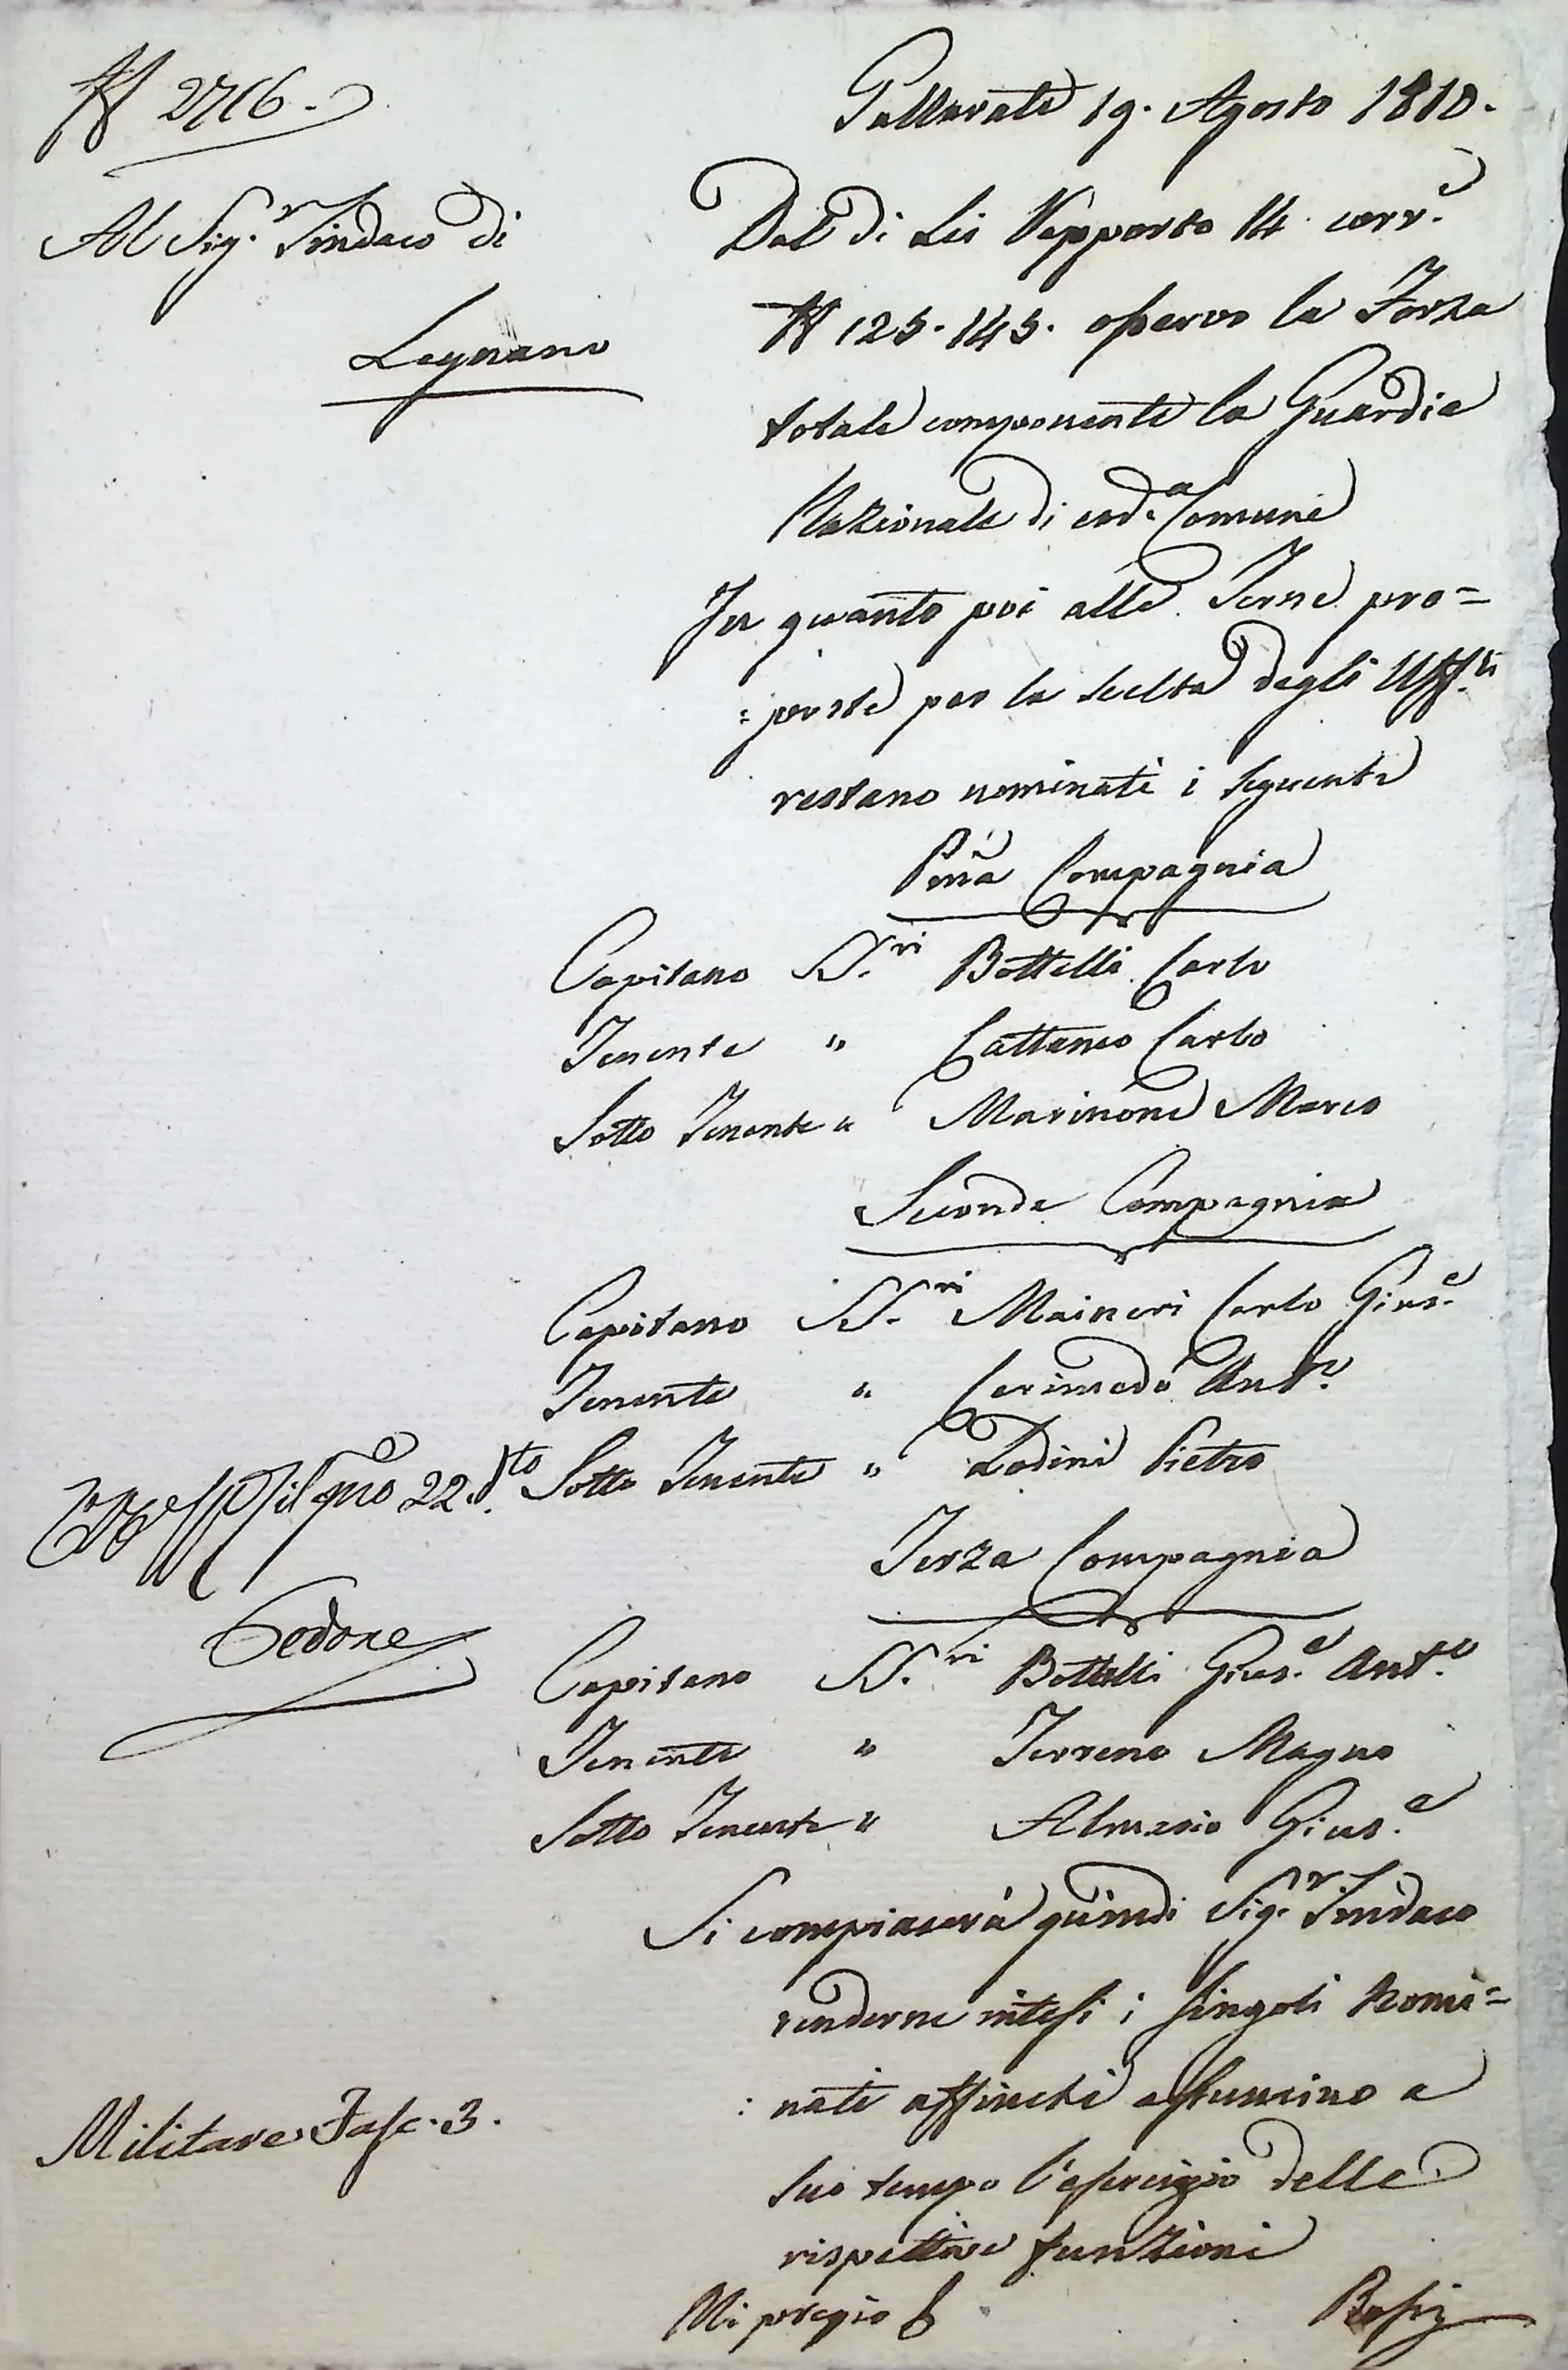 N 2716.
Gallarate 19. Agosto 1810.
Al Sig.r Sindaco di
Legnano
Dal di Lei Rapporto 14 corr.e
N 125.145. osservo la Forza
totale componente la Guardia
Nazionale di cod.a Comune
Per quanto poi alle Terne pro=
=poste per la scelta degli Uff.li
restano nominati i seguenti
Pma Compagnia
Capitano SS.ri Bottelli Carlo
Tenente " Cattaneo Carlo
Sotto Tenente " Marinoni Marco
Seconda Compagnia
Capitano SS.ri Maineri Carlo Gius.e
Tenente " Cerimedo Ant.o
Sotto Tenente " Lodini Pietro
il gno 22. dto
Terza Compagnia
Capitano SS.ri Bottelli Gius.e Ant.o
Tenente " Terreno Magno
Sotto Tenente " Almasio Gius.e
Si compiacerà quindi Sig.r Sindaco
renderne intesi i singoli Nomi=
: nati affinchè assumino a
suo tempo l'esercizio delle
rispettive funzioni
Militare Fasc. 3.
Mi pregio